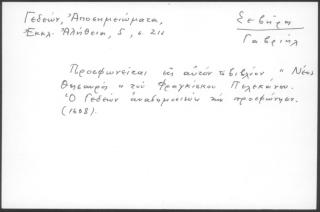 Γεδεών, Ἀποσημειώματα,
Ἐκκλ. Ἀλήθεια, 5, σ. 211
Σεβήρος
Γαβριήλ
Προσφωνεῖται εἰς αὐτὸν τὸ βιβλίον " Νέος
Θησαυρὸς " τοῦ Φραγκίσκου Πελεκάνου.
Ὁ Γεδεών ἀναδημοσιεύει τὴν προσφώνησιν.
(1608).